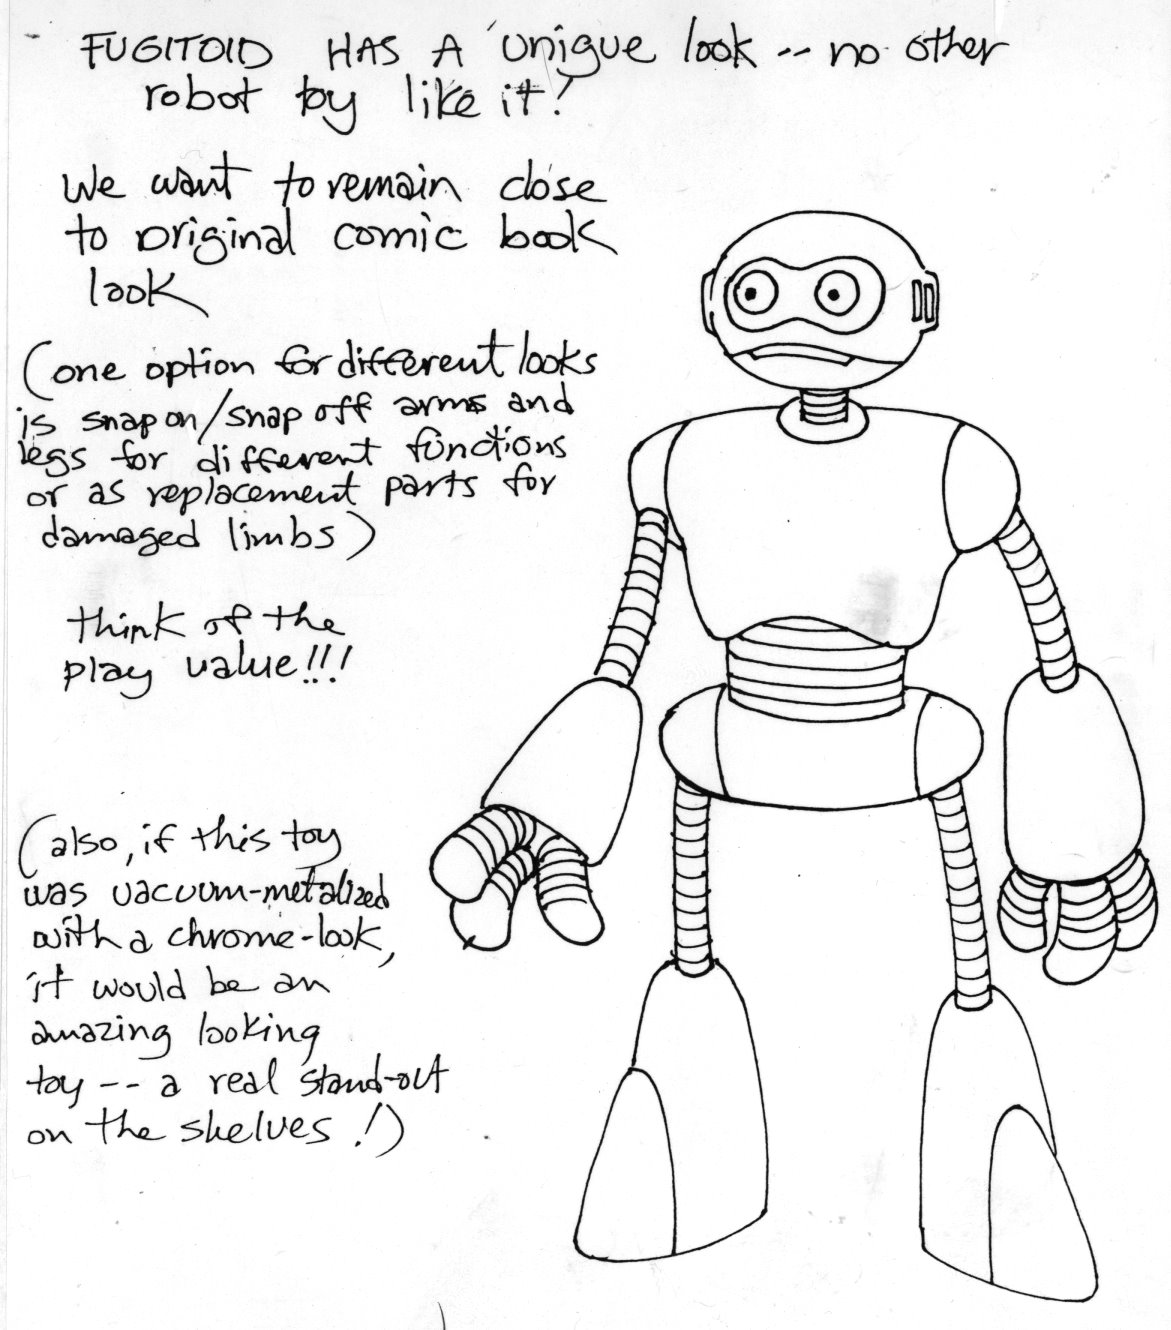 FUGITOID HAS A unique look -- no other
robot toy like it!
We want to remain close
to original comic book
look
(one option for different looks
is snap on/snap off arms and
legs for different functions
or as replacement parts for
damaged limbs)
think of the
play value!!!
(also, if this toy
was vacuum-metalized
with a chrome-look,
it would be an
amazing looking
toy -- a real stand-out
on the shelves!)